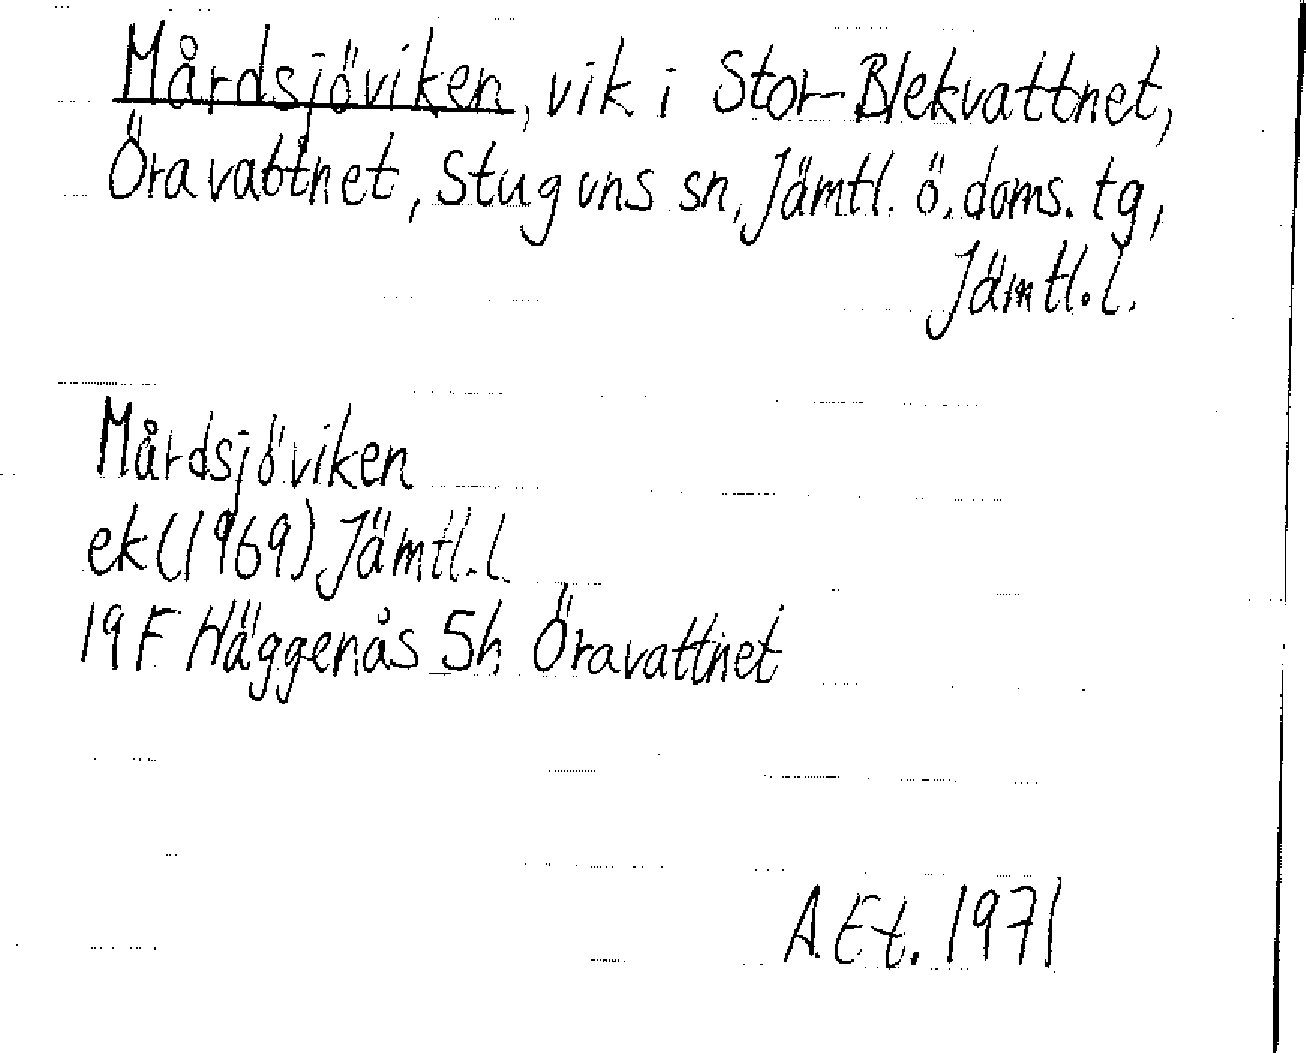 Mårdsjöviken, vik i Stor-Blekvattnet,
Öravattnet, Stuguns sn, Jämtl. ö. doms. tg,
Jämtl. l.
Mårdsjöviken
ek (1969) Jämtl. l.
19F Häggenås 5h Öravattnet
A.Et. 1971